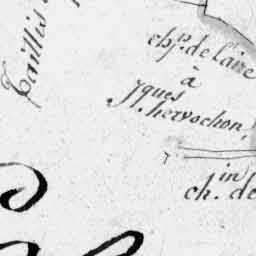 Taillis
chp. de l'aire
à
Jques
hervochon,
in
ch. de